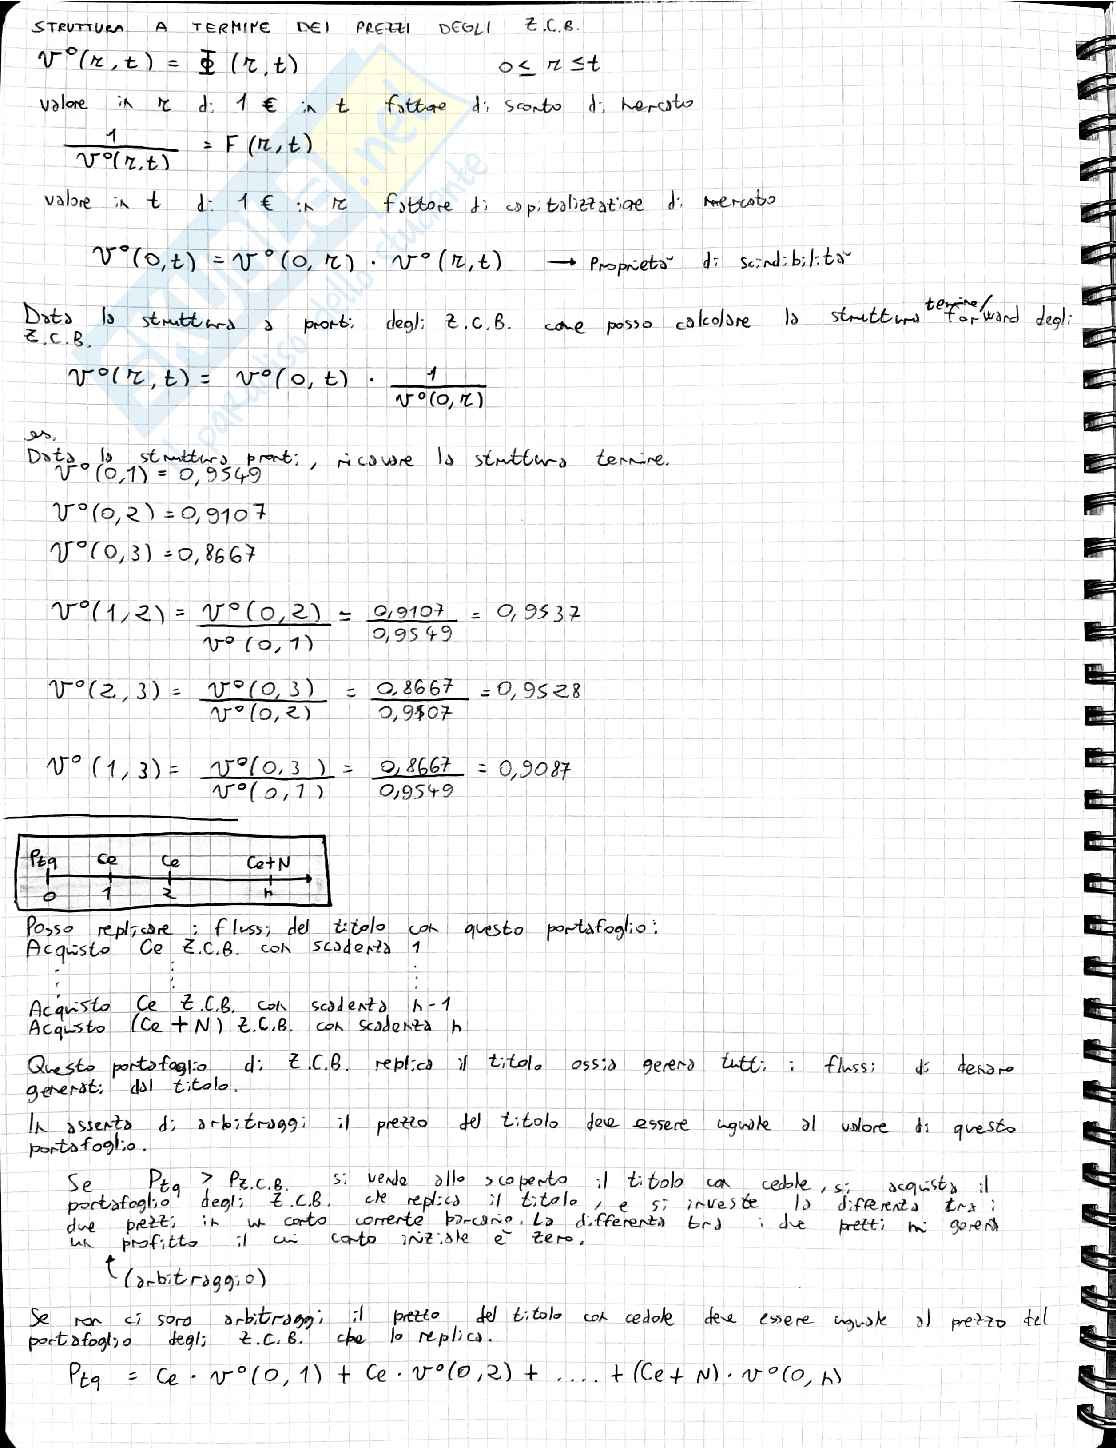 STRUTTURA A TERMINE DEI PREZZI DEGLI Z.C.B.
v°(r,t) = Φ (r,t) 0 ≤ r ≤ t
valore in r di 1 € in t fattore di sconto di mercato
1/v°(r,t) = F(r,t)
valore in t di 1 € in r fattore di capitalizzazione di mercato
v°(0,t) = v°(0,r) · v°(r,t) → Proprietà di scindibilità
Data la struttura a pronti degli Z.C.B. come posso calcolare la struttura termine/forward degli
Z.C.B.
v°(r,t) = v°(0,t) · 1/v°(0,r)
es.
Data la struttura pronti, ricavare la struttura termine.
v°(0,1) = 0,9549
v°(0,2) = 0,9107
v°(0,3) = 0,8667
v°(1,2) = v°(0,2)/v°(0,1) = 0,9107/0,9549 = 0,9537
v°(2,3) = v°(0,3)/v°(0,2) = 0,8667/0,9107 = 0,9528
v°(1,3) = v°(0,3)/v°(0,1) = 0,8667/0,9549 = 0,9087
Ptq Ce Ce Ce+N
0 1 2 n
Posso replicare i flussi del titolo con questo portafoglio:
Acquisto Ce Z.C.B. con scadenza 1
Acquisto Ce Z.C.B. con scadenza n-1
Acquisto (Ce + N) Z.C.B. con scadenza n
Questo portafoglio di Z.C.B. replica il titolo ossia genera tutti i flussi di denaro
generati dal titolo.
In assenza di arbitraggi il prezzo del titolo deve essere uguale al valore di questo
portafoglio.
Se Ptq > Pz.c.b. si vende allo scoperto il titolo con cedole, si acquista il
portafoglio degli Z.C.B. che replica il titolo, e si investe la differenza tra i
due prezzi in un conto corrente bancario. La differenza tra i due prezzi mi genera
un profitto il cui costo iniziale è zero.
(arbitraggio)
Se non ci sono arbitraggi il prezzo del titolo con cedole deve essere uguale al prezzo del
portafoglio degli Z.C.B. che lo replica.
Ptq = Ce · v°(0,1) + Ce · v°(0,2) + .... + (Ce + N) · v°(0,n)
SKUOLA.net
il paradiso dello studente